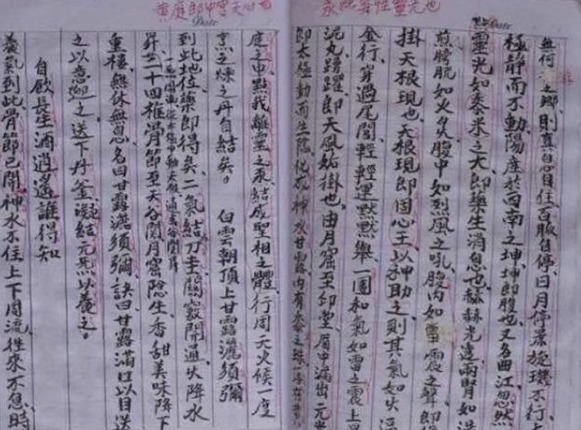 黃庭即中宮天心也
真性靈光也
無何之鄉則真息自住百脈自停日月停景璇璣不行
極靜而不動陽產於西南之坤坤即腹也又名曲江忽然
靈光如黍米之大即藥生消息也赫赫光透兩腎如湯
煎膀胱如火炙腹中如烈風之吼腹內如雷震之聲即復
掛天根現也天根現即固心王以神助之則其氣如火逼
金行穿過尾閭輕輕運默默舉一團和氣如雷之震上
泥丸踴躍即天風姤掛也由月窟至印堂眉中漏出元光
即太極動而生陰化成神水甘露內有黍米之珠一粒落在黃
庭之中點我離靈之汞結成聖相之體行周天火候一度
烹之煉之丹自結矣。 白雲朝頂上甘露灑須彌
到此地位藥即得矣二氣結刀圭關竅開通火降水
一氣周流從太極中動天根過玄谷關升
昇二十四椎骨即至天谷關月窟陰生香甜美味降下
重樓無休無息名曰甘露灑須彌訣曰甘露滿口以目送
之以意迎之送下丹釜凝結元炁以養之。
自飲長生酒逍遙誰得知
養氣到此骨節已開神水不住上下周流往來不息時